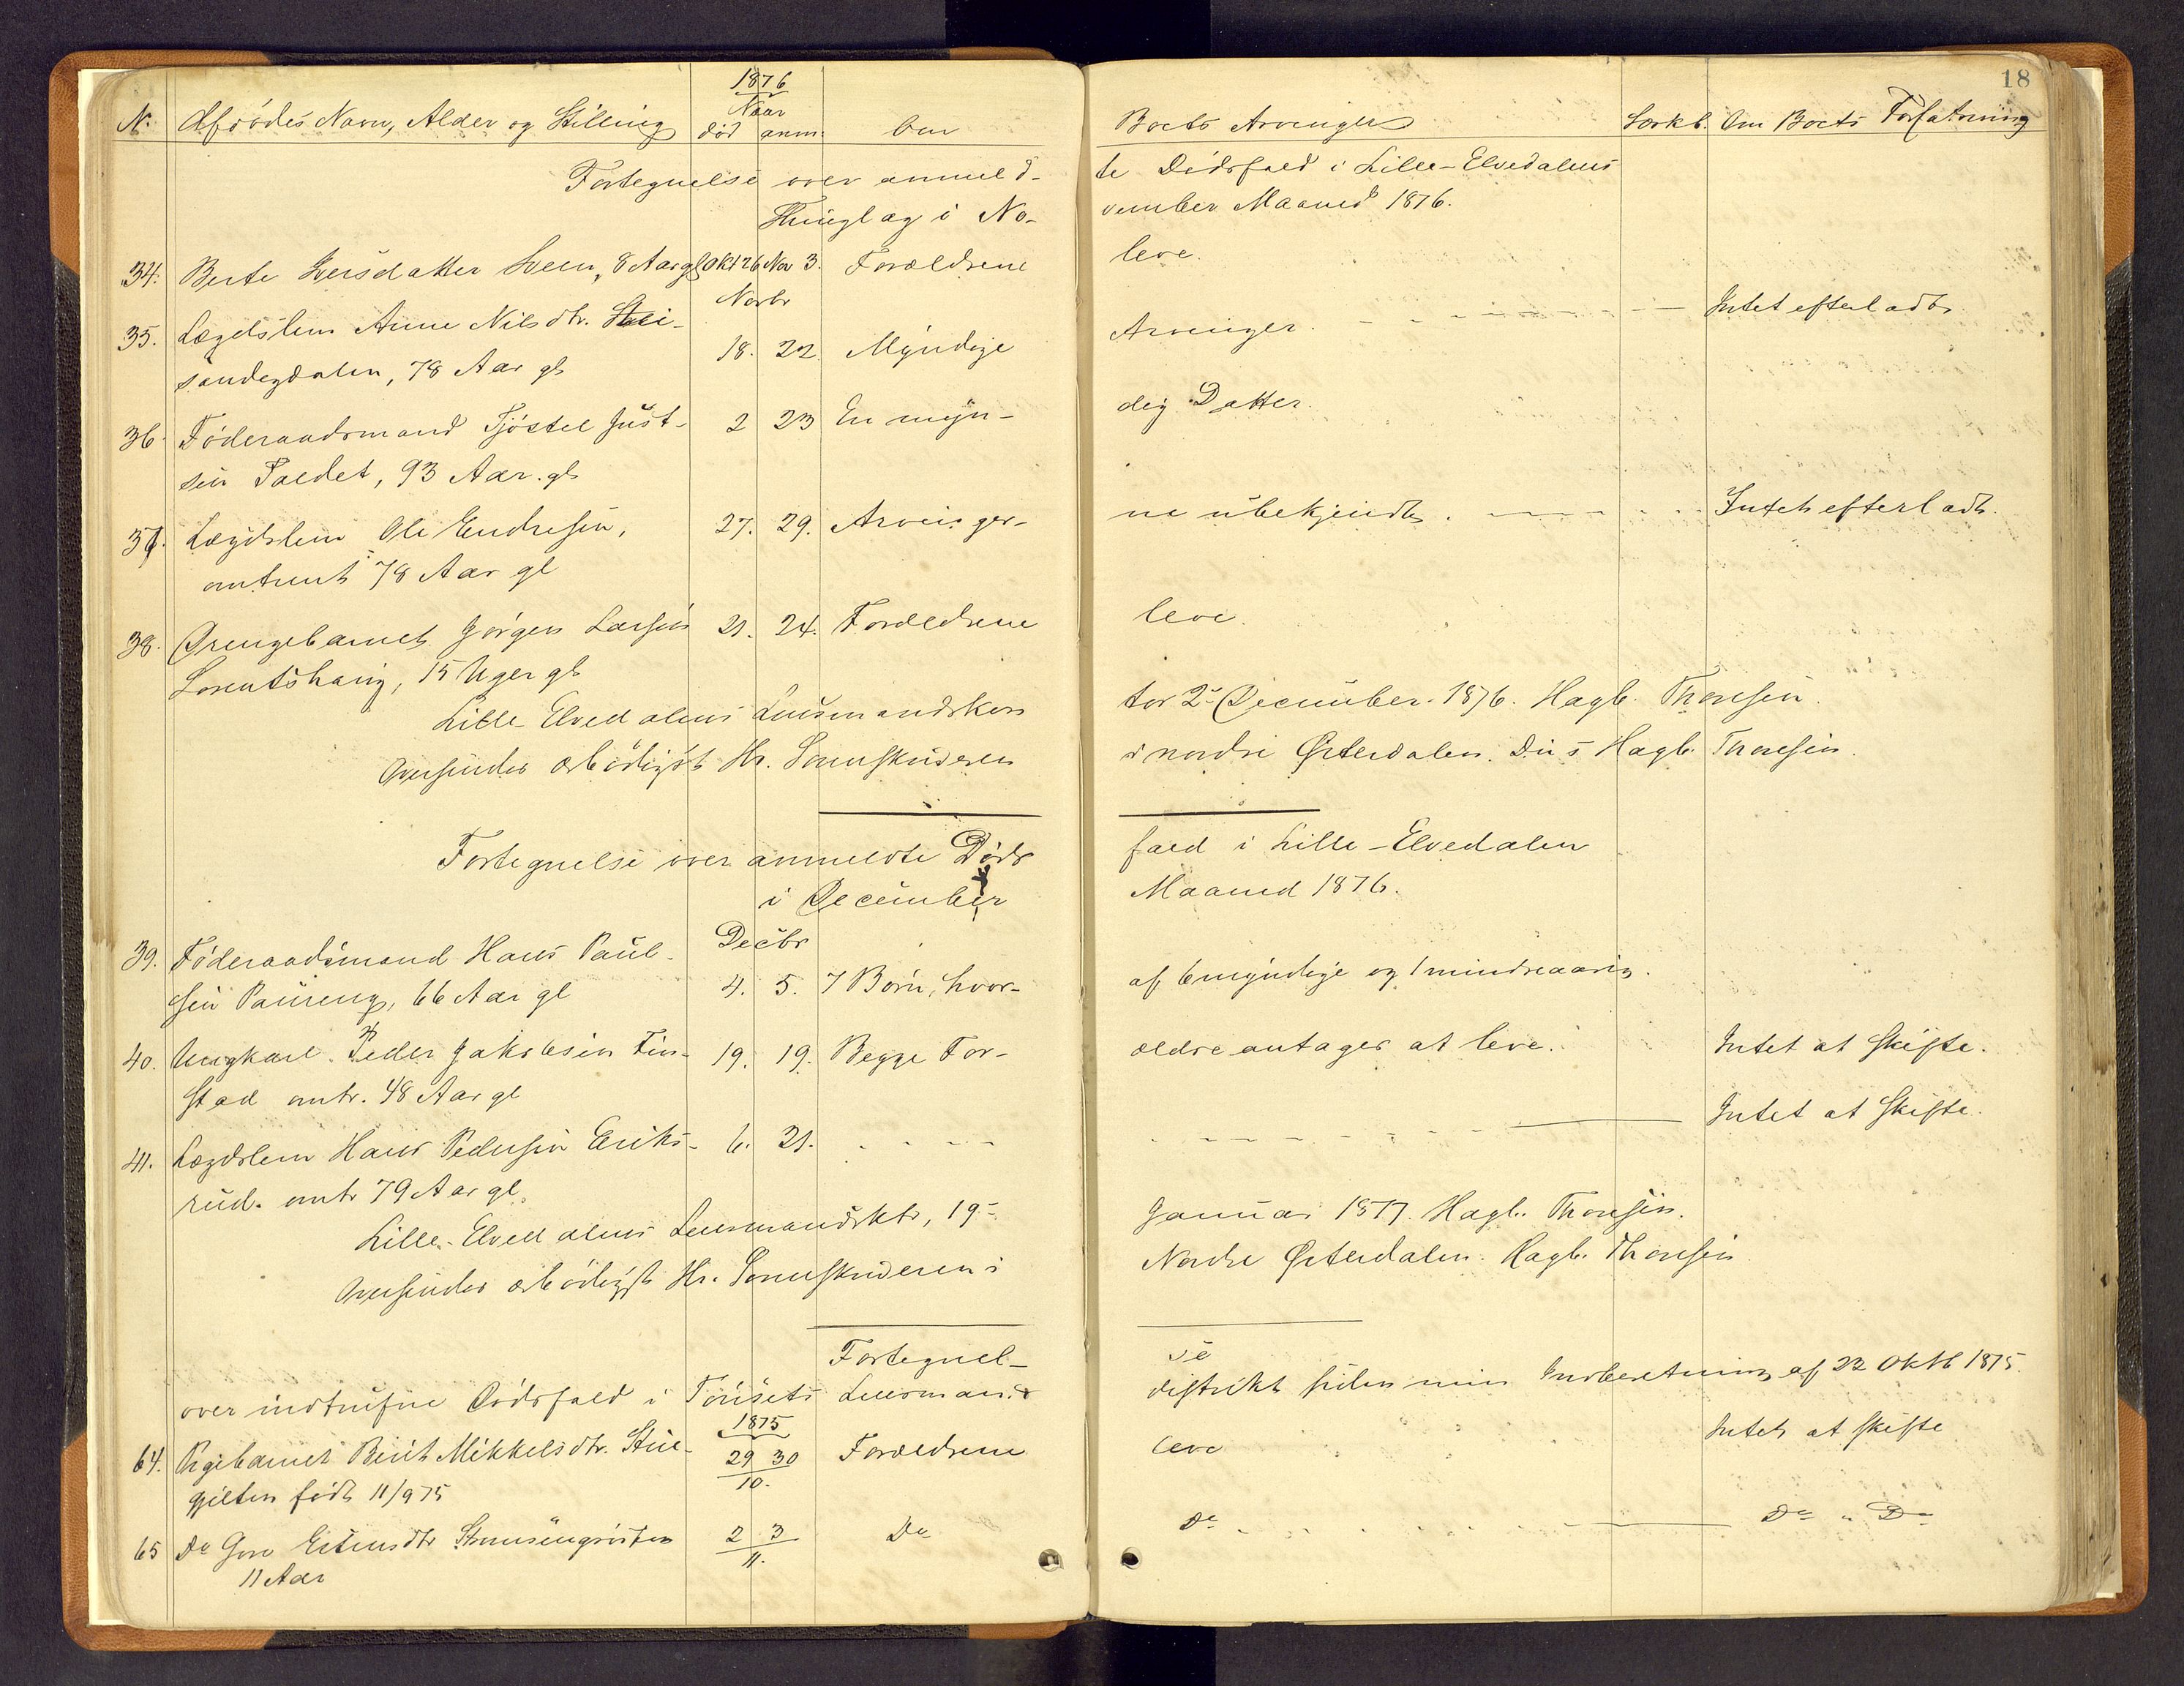 18
1876
N. Afdødes Navn, Alder og Stilling Naar død anm: Om Boets Arvinger Særkb. Om Boets Forfatning
Fortegnelse over anmeldte Dødsfald i Lille-Elvedalens
Thinglag i November Maaned 1876.
34. Berte Iversdatter Sveen, 8 Aar gl Okt 26 Nov 3. Forældrene leve.
Novbr
35. Lægdslem Anne Nilsdtr. Stei-
søndegdalen, 78 Aar gl 18. 22. Myndige Arvinger. Intet efterladt.
36. Føderaadsmand Tjøstel Just-
sen Foldet, 93 Aar. gl 2 23 En myn- dig Datter.
37. Lægdslem Ole Endresen,
omtrent 78 Aar gl 27. 29. Arvinger- ne ubekjendte. Intet efterladt.
38. Drengebarnet Jørgen Larsen
Lorentshaug, 15 Uger gl 21. 24. Forældrene leve.
Lille Elvedalens Lensmandskontor 2. December 1876. Hagb. Thoresen.
Oversendes ærbødigst Hr. Sorenskriveren i nordre Østerdalen. D. u. s. Hagb. Thoresen.
Fortegnelse over anmeldte Dødsfald i Lille-Elvedalen
i December Maaned 1876.
Decbr
39. Føderaadsmand Hans Paul-
sen Paureng, 66 Aar gl 4. 5. 7 Børn, hvor- af 6 myndige og 1 mindreaarig.
40. Ungkarl. Peder Jakobsen Fin-
stad omtr. 48 Aar gl 19. 19. Begge For- ældre antages at leve. Intet at skifte.
41. Lægdslem Hans Pedersen Eriks-
rud. omtr 79 Aar gl. 6. 21. Intet at skifte.
Lille-Elvedalens Lensmandsktr, 19. Januar 1877. Hagb. Thoresen.
Oversendes ærbødigst Hr. Sorenskriveren i Nordre Østerdalen. Hagb. Thoresen
Fortegnel- se
over indtrufne Dødsfald i Tønsets Lensmands distrikt siden min Indberetning af 22 Oktb 1875.
1875
64. Pigebarnet Berit Mikkelsdtr. Stue-
gjelten født 11/9 75 29 30 10. Forældrene leve Intet at skifte
65 Do Goro Estensdtr 2 3 11. Do Do Do " Do
11 Aar